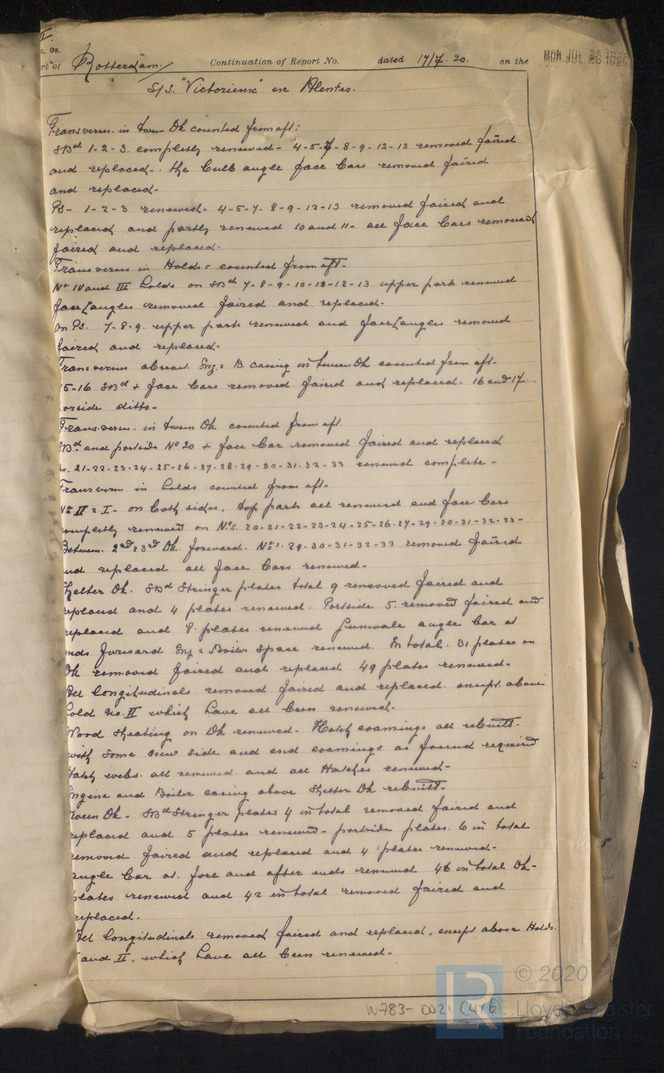 Rotterdam Continuation of Report No. dated 17/7. 20. on the
MON. JUL 26 1920
S/S. "Victorious" ex Alentes.
Transverses in tween Dk counted from aft:
SBd 1-2-3. completly renewed- 4-5-7-8-9-12-13 removed faired
and replaced-. the bulb angle face bars removed faired
and replaced-
PS- 1-2-3 renewed- 4-5-7-8-9-12-13 removed faired and
replaced and partly renewed 10 and 11- all face bars removed
faired and replaced-
Transverses in Holds = counted from aft-
No IV and III holds on SBd 7-8-9-10-12-13 upper part renewed
face angles removed faired and replaced-
on PS. 7-8-9- upper parts renewed and face angles removed
faired and replaced-
Transverses abreas Eng & B casing in tween Dk counted from aft-
15-16 SBd + face bars removed faired and replaced. 16 and 17
portside ditto-
Transverses. in tween Dk counted from aft
SBd and portside No 20 + face bar removed faired and replaced
21-22-23-24-25-26-27-28-29-30-31-32-33 renewed complete-
Transverses in holds counted from aft-
No II & I- on both sides, top parts all renewed and face bars
completly renewed on Nos. 20-21-22-23-24-25-26-27-29-30-31-32-33-
Between 2nd & 3rd Dk. forward. Nos. 29-30-31-32-33 removed faired
and replaced all face bars renewed-
Shelter Dk. SBd Stringer plates total 9 removed faired and
replaced and 4 plates renewed. Portside 5 removed faired and
replaced and 8 plates renewed Gunwale angle bar at
ends forward Eng & Boiler space renewed. In total. 31 plates on
Dk removed faired and replaced 49 plates renewed-
All Longitudinals removed faired and replaced. except above
hold No. II which have all been renewed-
Wood Sheating on Dk renewed. Hatch coamings all rebuilt-
with some new side and end coamings as found required
Hatch webs. all renewed. and all Hatches renewed-
Engine and Boiler casing above Shelter Dk rebuilt-
Tween Dk- SBd Stringer plates 4 in total removed faired and
replaced and 5 plates renewed- portside plates. 6 in total
removed faired and replaced and 4 plates renewed-
angle bar at fore and after ends renewed 46 in total Dk-
plates renewed and 42 in total removed faired and
replaced.
All longitudinals removed faired and replaced, except above Holds
and II, which have all been renewed-
W783-0021 (4/6)
LR © 2020
Lloyd's Register
Foundation